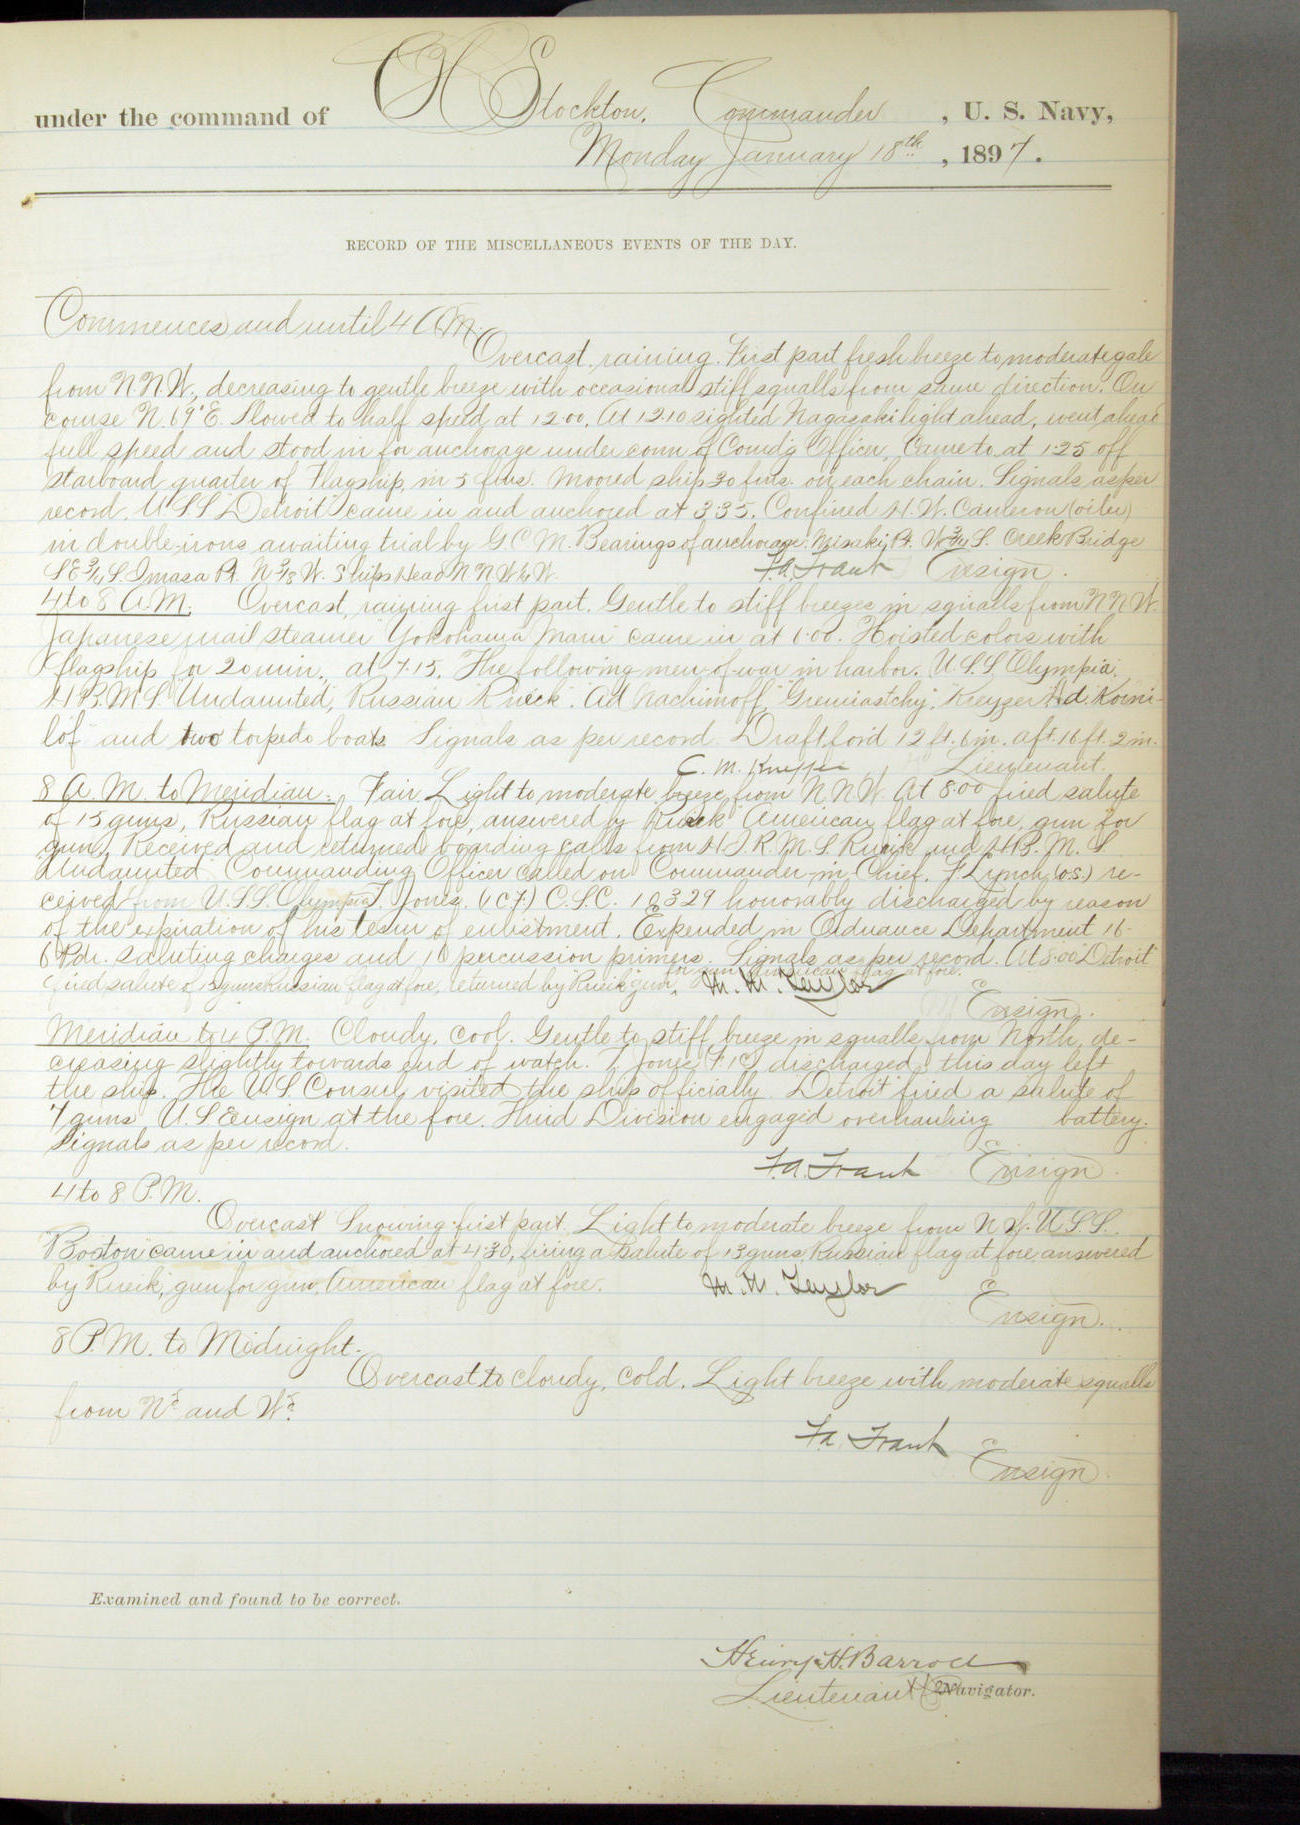 under the command of C H Stockton, Commander, U. S. Navy,
Monday January 18th, 1897.
RECORD OF THE MISCELLANEOUS EVENTS OF THE DAY.
Commences and until 4 A.M.
Overcast, raining. First part fresh breeze to moderate gale
from N.N.W., decreasing to gentle breeze with occasional stiff squalls from same direction. On
course N. 69° E. Slowed to half speed at 12.00. At 12.10 sighted Nagasaki light ahead, went ahead
full speed and stood in for anchorage under conn of Comd'g Officer, Came to at 1.25 off
starboard quarter of Flagship, in 5 fms. Moored ship 30 fms. on each chain. Signals as per
record. U.S.S "Detroit" came in and anchored at 3.35. Confined H. W. Cameron (oiler)
in double-irons awaiting trial by G.C.M. Bearings of anchorage: Misaki Pt. W 3/4 S. Creek Bridge
S E 3/4 S. Imasa Pt. N 3/8 W. Ships Head N N W 1/2 W.
F. A. Traut Ensign.
4 to 8 A.M. Overcast, raining first part. Gentle to stiff breezes in squalls from N N W.
Japanese mail steamer "Yokohama Maru" came in at 6.00. Hoisted colors with
flagship for 20 min., at 7.15. The following men-of-war in harbor. U.S.S. Olympia,
H.B.M.S. Undaunted, Russian "Rurick", "Ad Nachimoff," "Gremiastchy," Kreyser "Ad. Korni-
lof" and two torpedo boats. Signals as per record. Draft ford 12 ft. 6 in. aft. 16 ft. 2 in.
C. M. Knepper Lieutenant.
8 A.M. to Meridian: Fair. Light to moderate breeze from N N W. At 8.00 fired salute
of 15 guns, Russian flag at fore, answered by "Rurick" American flag at fore, gun for
gun. Received and returned boarding calls from H.I.R.M.S. Rurik and H.B.M.S
Undaunted. Commanding Officer called on Commander-in-Chief. J Lynch (o.s.) re-
ceived from U.S.S. Olympia. J. Jones, (1 C F.) C.S.C. 18329 honorably discharged by reason
of the expiration of his term of enlistment. Expended in Ordnance Department 16-
6 Pdr. saluting charges and 16 percussion primers. Signals as per record. At 8.00 "Detroit"
fired salute of 15 guns Russian flag at fore, returned by "Rurik" gun for gun American flag at fore.
M. M. Taylor
Ensign.
Meridian to 4 P.M. Cloudy, cool. Gentle to stiff breeze in squalls from North, de-
creasing slightly towards end of watch. J. Jones, F. 1 C, discharged this day left
the ship. The U.S. Consul visited the ship officially. "Detroit" fired a salute of
7 guns U.S Ensign at the fore. Third Division engaged overhauling battery.
Signals as per record.
F. A. Traut Ensign.
4 to 8 P.M.
Overcast. Snowing first part. Light to moderate breeze from N W. U.S.S.
"Boston" came in and anchored at 4:30, firing a salute of 15 guns, Russian flag at fore, answered
by "Rurik," gun for gun, American flag at fore.
M. M. Taylor
Ensign.
8 P.M. to Midnight.
Overcast to cloudy, cold. Light breeze with moderate squalls
from Nd and Wd.
F. A. Traut
Ensign.
Examined and found to be correct.
Henry H. Barroll
Lieutenant Navigator.